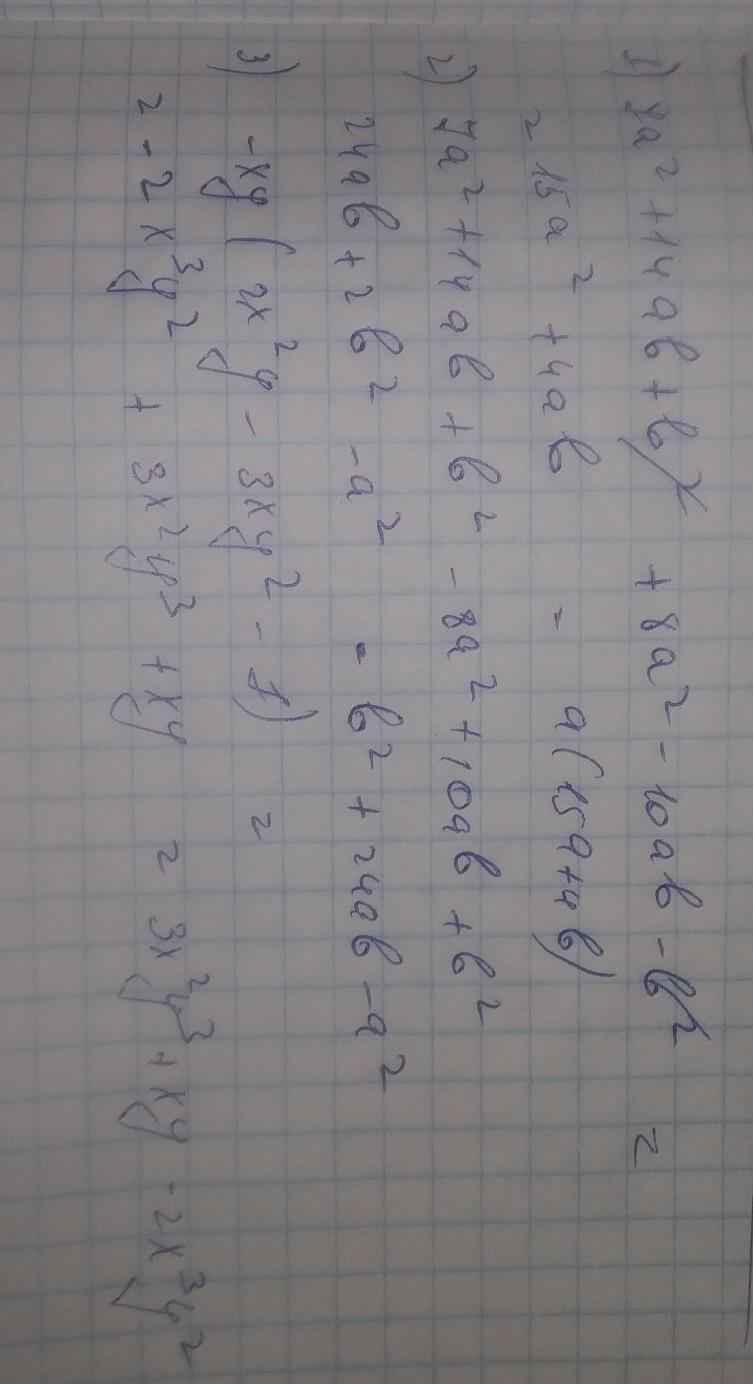 1) 7a² + 14ab + b² + 8a² - 10ab - b² =
= 15a² + 4ab = a(15a + 4b)
2) 7a² + 14ab + b² - 8a² + 10ab + b²
24ab + 2b² - a² = b² + 24ab - a²
3) -xy(2x²y - 3xy² - 1) =
= -2x³y² + 3x²y³ + xy = 3x²y³ + xy - 2x³y²